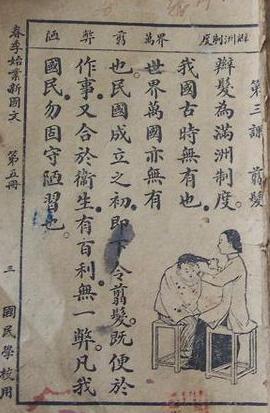 第三課　剪髮
辮髮為滿洲制度。
我國古時無有也。
世界萬國亦無有
也。民國成立之初。即下令剪髮。既便於
作事。又合於衞生。有百利。無一弊。凡我
國民。勿固守陋習也。
滿洲制度　界萬　剪　弊　陋
春季始業新國文　第五冊　三　國民學校用